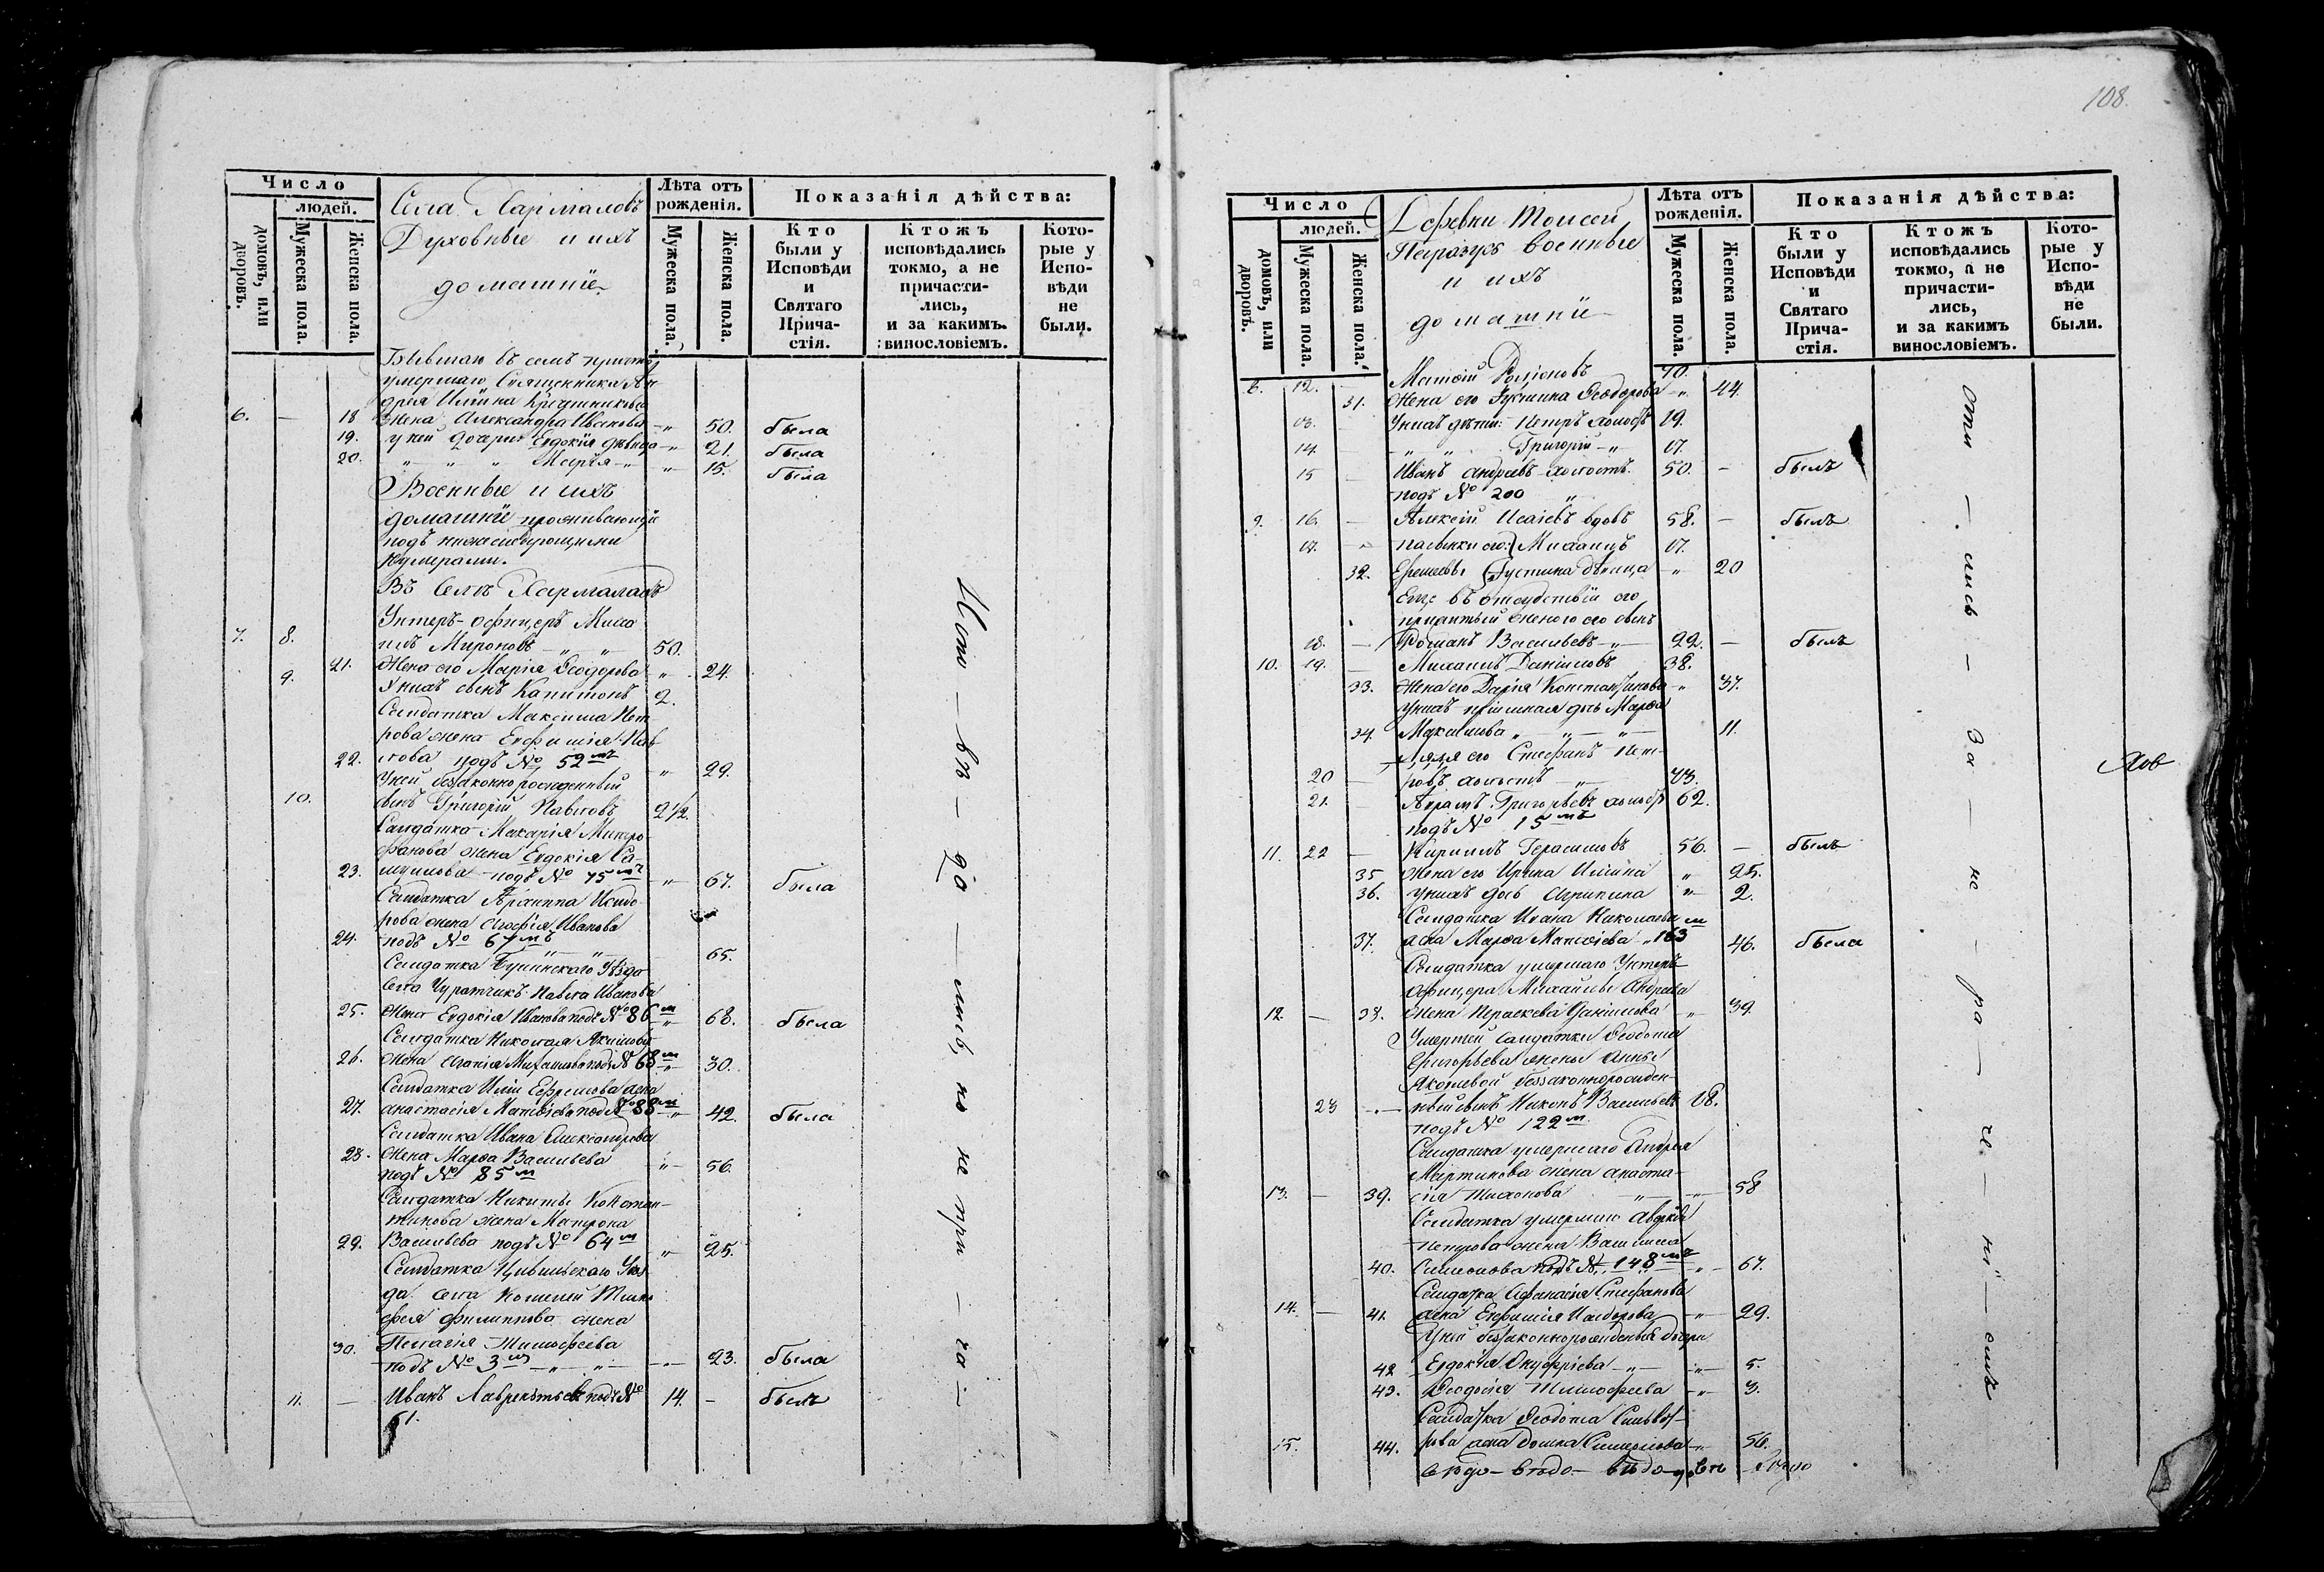 Число
людей.
домовъ, или дворовъ.
Мужеска пола.
Женска пола.
Села Хармаловъ
Духовные и ихъ
домашніе
Лѣта отъ
рожденія.
Мужеска пола.
Женска пола.
Показанія дѣйства:
Кто
были у
Исповѣди
и
Святаго
Прича-
стія.
Ктожъ
исповѣдались
токмо, а не
причасти-
лись,
и за какимъ
винословіемъ.
Кото-
рые у
Испо-
вѣди
не
были.
Бывшаго въ семъ приходѣ
умершаго Священника Ан-
дрея Ильина
6. — 18 Жена Александра Иванова —„ 50. была
19. у ней дочери Евдокія дѣвица —„ 21. была
20. „ „ „ Марія —„ „ 15. была
Военные и ихъ
домашніе проживающіе
подъ нижеслѣдующими
нумерами.
Въ Селѣ Хармалахъ
Унтеръ-офицеръ Миха
7. 8. илъ Мироновъ — „ — „ 50.
21. Жена его Марія Ѳеодорова „ 24.
9. У нихъ сынъ Капитонъ 2.
Солдатка Максима Пет
рова жена Евфимія Пав
22. лова подъ № 52мъ „ 29.
У ней беззаконнорожденный
10. сынъ Григорій Павловъ 2½.
Солдатка Макарія Митро
фанова жена Евдокія Са-
23. муилова подъ № 75мъ „ 67. была
Солдатка Архиппа Исидо
рова жена Софія Иванова
24. подъ № 67мъ „ „ 65.
Солдатка Буинскаго Уѣзда
Села Чуратчикъ Павла Иванова
25. Жена Евдокія Иванова подъ № 86м „ 68. была
Солдатка Николая Якимова
26. Жена Агафія Михайлова подъ № 68м „ 30.
Солдатка Иліи Ефремова жена
27. Анастасія Матвѣева подъ № 88м „ 42. была
Солдатка Ивана Александрова
28. Жена Марѳа Васильева „ 56.
подъ № 85м
Солдатка Никиты Констан-
тинова жена Матрона
29. Васильева подъ № 64м „ 25.
Солдатка Цивильскаго Уѣз
да Села Кошелей Тимо
фея Филиппова жена
30. Пелагія Тимофеева
подъ № 3м — „ — „ 23. была
11. — Иванъ Лаврентьевъ подъ № 14. — былъ
61.
Испо — вѣ — да — лись, но не при — ча —
108.
Число
людей.
домовъ, или дворовъ.
Мужеска пола.
Женска пола.
Деревни Моисей
военные
и ихъ
домашніе
Лѣта отъ
рожденія.
Мужеска пола.
Женска пола.
Показанія дѣйства:
Кто
были у
Исповѣди
и
Святаго
Прича-
стія.
Ктожъ
исповѣдались
токмо, а не
причасти-
лись,
и за какимъ
винословіемъ.
Кото-
рые у
Испо-
вѣди
не
были.
12. — Матвій Родіоновъ 40.
31. Жена его Іустина Ѳеодорова „ 44.
У нихъ дѣти: Петръ холостъ 19.
14. „ „ Григорій „ 17.
15 — Иванъ Андреевъ холостъ 50. — былъ
подъ № 200 „
9. 16. — Алексій Исаіевъ вдовъ 58. — былъ
17. пасынки его: Михаилъ 17.
32. Іустина дѣвица „ 20
Еще въ отсудствіи его
женою его сынъ
18. — Романъ Васильевъ „ 22. — былъ
10. 19. — Михаилъ Даніиловъ 38.
33. Жена его Дарія Константинова „ 37.
У нихъ пріемная дочь Марѳа
34. Максимова „ „ 11.
дядя его Стефанъ Пет-
20 — ровъ холостъ „ 43.
21. — Аврамъ Григорьевъ холостъ 62.
подъ № 15мъ
11. 22 — Кириллъ Герасимовъ 56. — былъ
35 Жена его Ирина Ильина „ 25.
36. У нихъ дочь Агрипина „ 2.
Солдатка Ивана Николаева
37. жена Марѳа Матвѣева „ 163м 46. была
Солдатка умершаго Унтеръ
Офицера Михаила Андреева
12. — 38. Жена Параскева Даніилова „ 39.
Умершей солдатки Ѳедота
Григорьева жены Анны
Яковлевой беззаконнорожден-
23 — ный сынъ Никонъ Васильевъ 18.
подъ № 122м
Солдатка умершаго Андрея
Мартинова жена Анаста-
13. — 39. сія Тихонова „ „ 58
Солдатка умершаго
Петрова жена Василиса
40. Симеонова подъ № 148мъ „ 67.
Солдатка Афанасія Стефанова
14. — 41. жена Евфимія Исидорова „ 29.
У ней беззаконнорожденныя дочери
42 Евдокія Онуфріева „ „ 5.
43. Ѳеодосія Тимофеева „ 3.
Солдатка Ѳеодота Сильвест-
15. 44. рова жена Домна Симеонова „ 56.
сти — лись — За — не — ра — че — ні — емъ